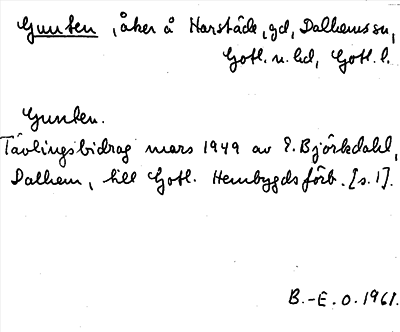 Gunten, åker å Harstäde, gd, Dalhems sn,
Gotl. n. hd, Gotl. l.
Gunten.
Tävlingsbidrag mars 1949 av E. Björkdahl,
Dalhem, till Gotl. Hembygdsförb. [s. 1].
B.-E. O. 1961.